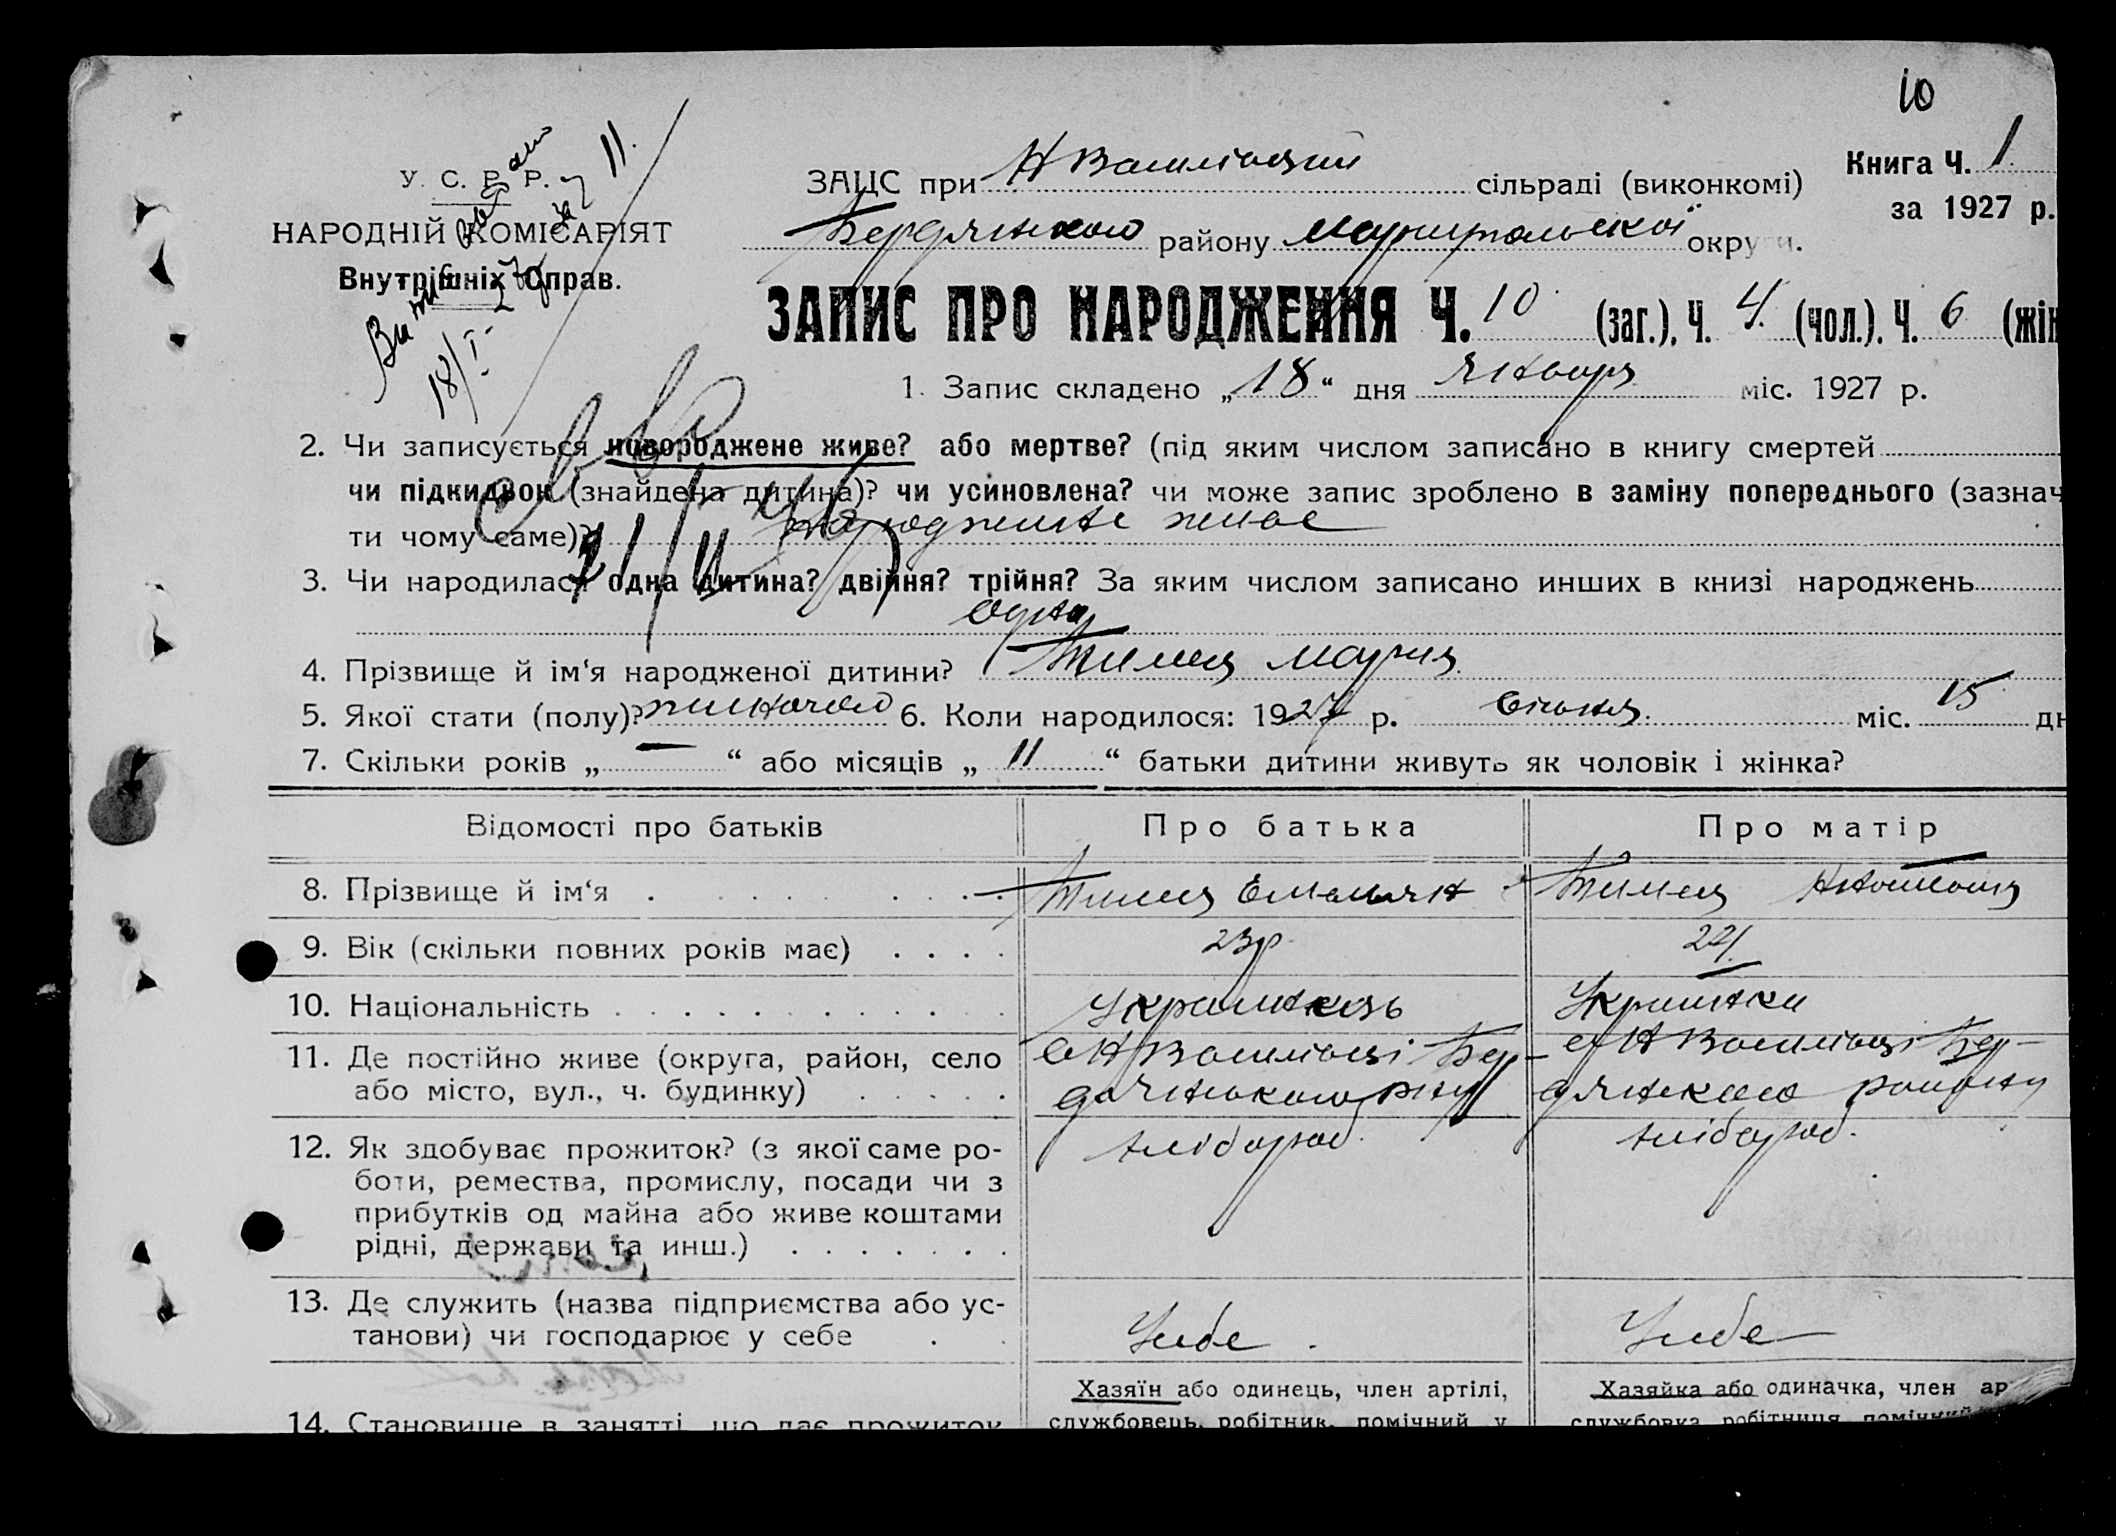 10
У. С. Р. Р.
НАРОДНІЙ КОМІСАРІЯТ
Внутрішніх Справ.
18/I-27
11.
ЗАЦС при Н Василівцкій сільраді (виконкомі)
Книга Ч. 1
за 1927 р.
Бердянского району Маріупольскої округи.
ЗАПИС ПРО НАРОДЖЕННЯ Ч. 10 (заг.), Ч. 4. (чол.). Ч. 6 (жін
1. Запис складено „18“ дня Января міс. 1927 р.
2. Чи записується новороджене живе? або мертве? (під яким числом записано в книгу смертей
чи підкидьок (знайдена дитина)? чи усиновлена? чи може запис зроблено в заміну попереднього (зазнач
ти чому саме)? народжене живе
3. Чи народилася одна дитина? двійня? трійня? За яким числом записано инших в книзі народжень
одна
4. Прізвище й ім‘я народженої дитини? Мария
5. Якої стати (полу)? жиночого 6. Коли народилося: 1927 р. Січня міс. 15 дн
7. Скільки років „ — “ або місяців „ 11 “ батьки дитини живуть як чоловік і жінка?
Відомості про батьків Про батька Про матір
8. Прізвище й ім‘я . . . . . . . Емельян
9. Вік (скільки повних років має) . . . . 23р. 22р.
10. Національність . . . . . . . . . . . Українець Українка
11. Де постійно живе (округа, район, село с Н Василівці Бер- с Н Василівці Бер-
або місто, вул., ч. будинку) . . . . . дянського р-ну дянского району
12. Як здобуває прожиток? (з якої саме ро- хлібороб. хлібороб.
боти, ремества, промислу, посади чи з
прибутків од майна або живе коштами
рідні, держави та инш.) . . . . . . .
13. Де служить (назва підприємства або ус-
танови) чи господарює у себе . . Усебе . Усебе
Хазяїн або одинець, член артілі, Хазяйка або одиначка, член ар
14. Становище в занятті, що дає прожиток службовець, робітник, помічний у службовка робітниця помічний